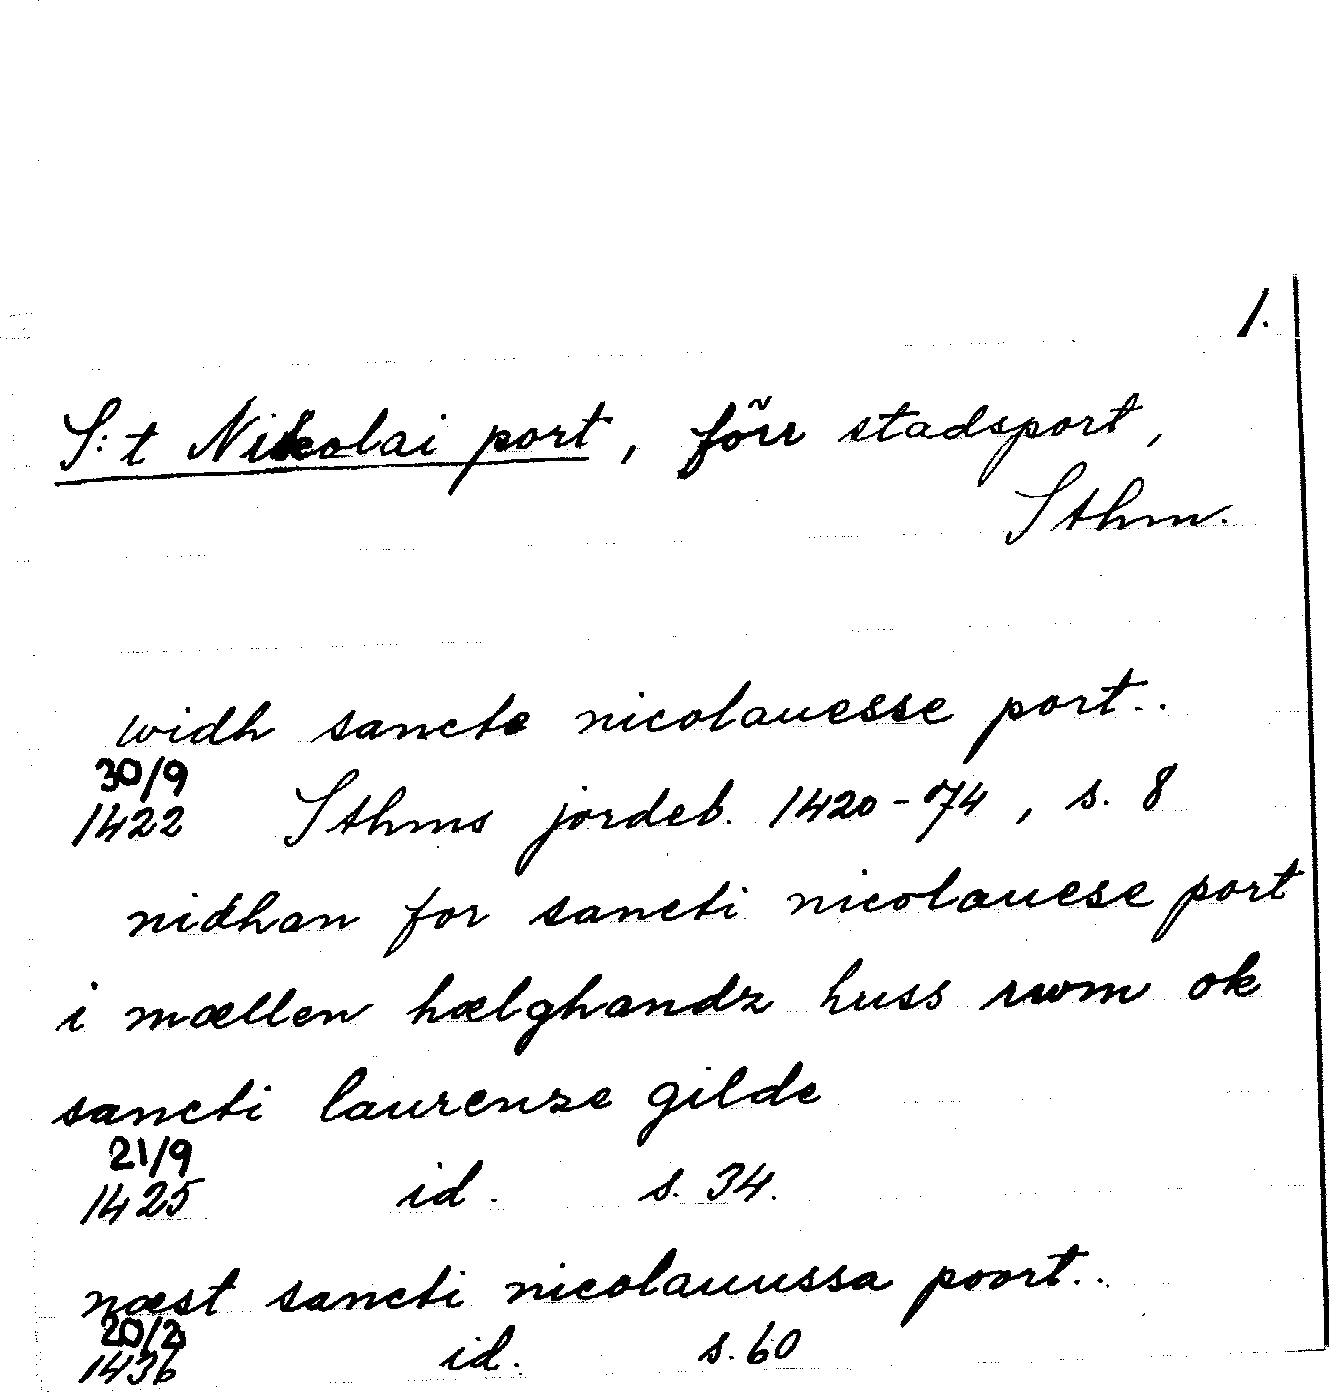 1.
S:t Nikolai port, förr stadsport,
Sthm.
widh sancte nicolauesse port..
30/9
1422 Sthms jordeb. 1420-74, s. 8
nidhan for sancti nicolauese port
i mællen hælghandz huss rwm ok
sancti laurenze gilde
21/9
1425 id. s. 34.
næst sancti nicolauussa poort..
20/2
1436 id. s. 60